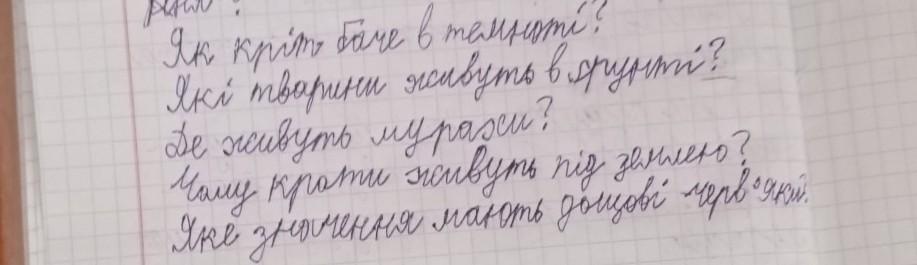 Як кріт баче в темноті?
Які тварини живуть в ґрунті?
Де живуть мурахи?
Чому кроти живуть під землею?
Яке значення мають дощові черв'яки.